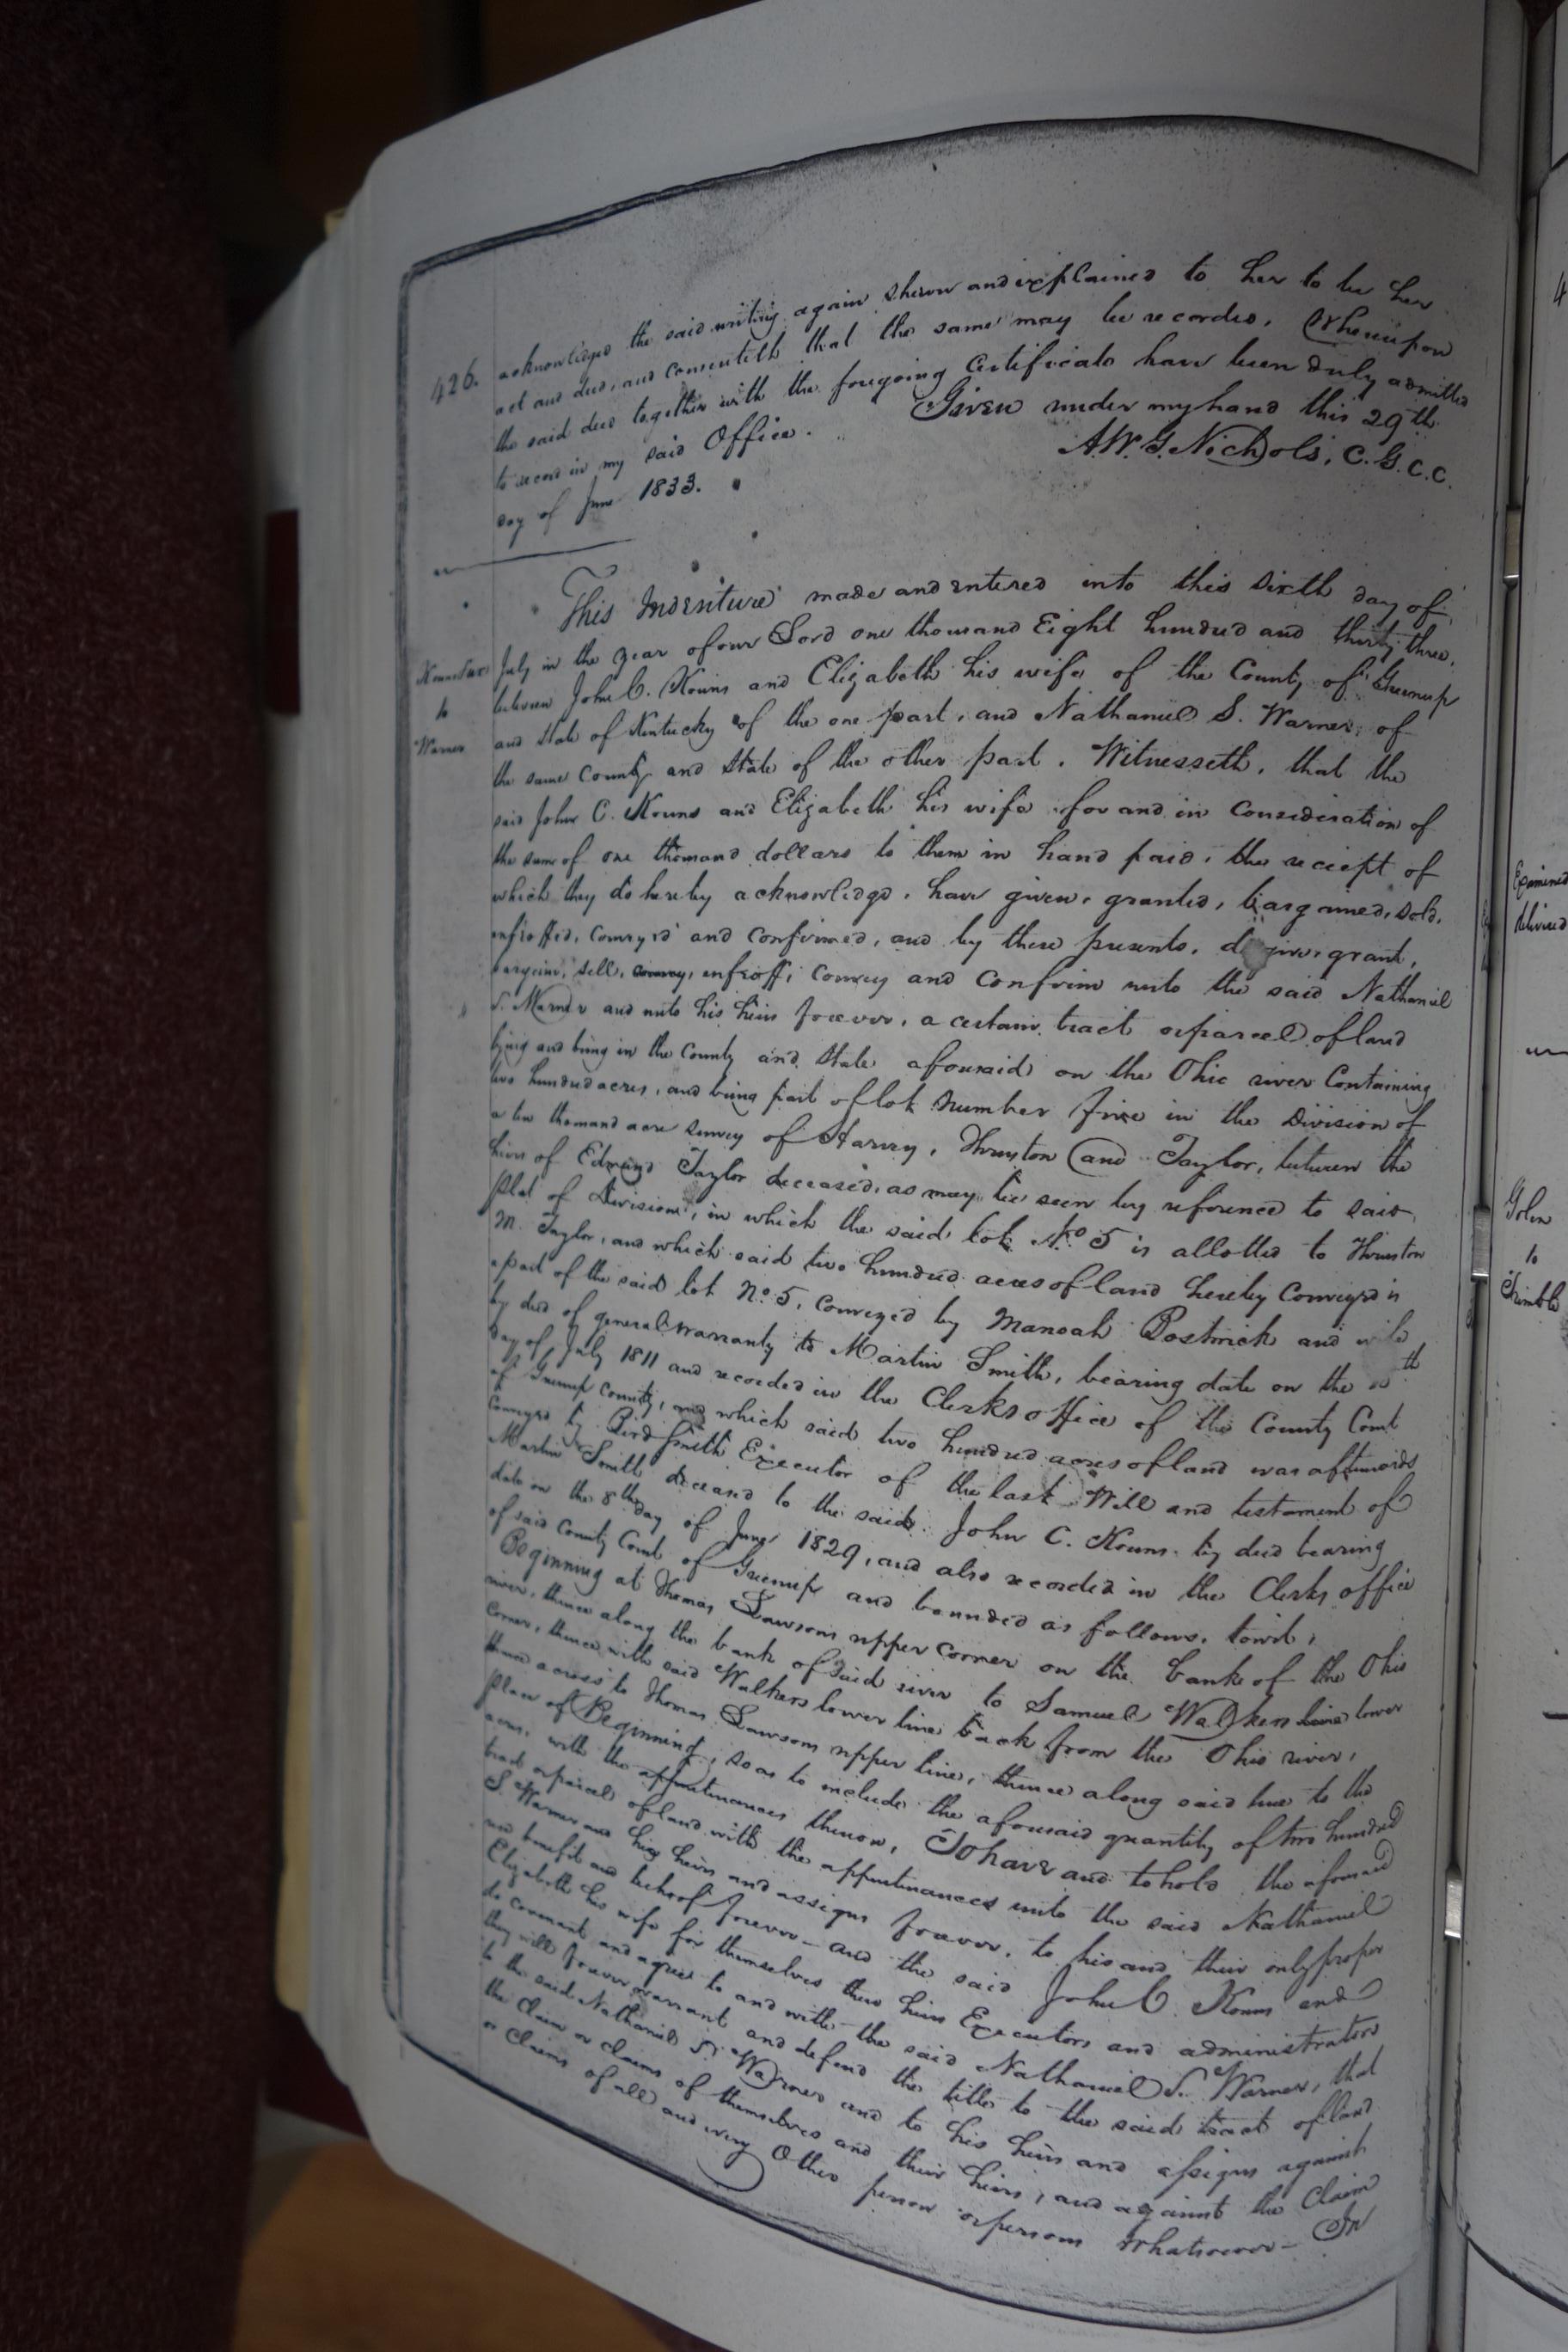 426.
acknowledged the said writing again shewn and explained to her to be her
act and deed, and consenteth that the same may be recorded. Whereupon
the said deed together with the foregoing Certificate have been duly admitted
to record in my said Office. Given under my hand this 29th
day of June 1833.
A.W.G. Nichols, C.G.C.C.
This Indenture made and entered into this sixth day of
July in the year of our Lord one thousand Eight hundred and thirty three.
Kouns &ux
to
Warner
between John C. Kouns and Elizabeth his wife of the County of Greenup
and State of Kentucky of the one part, and Nathaniel S. Warner, of
the same County and State of the other part. Witnesseth, that the
said John C. Kouns and Elizabeth his wife for and in consideration of
the sum of one thousand dollars to them in hand paid, the reciept of
which they do hereby acknowledge, have given, granted, bargained, sold,
enfeoffed, conveyed and confirmed, and by these presents, do give, grant,
bargain, sell, convey, enfeoff, convey and confirm unto the said Nathaniel
S. Warner and unto his heirs forever, a certain tract or parcel of land
lying and being in the County and State aforesaid on the Ohio river Containing
two hundred acres, and being part of lot number five in the Division of
a ten thousand acre survey of Harvey, Thruston and Taylor, between the
heirs of Edmund Taylor deceased, as may be seen by reference to said
plat of Division, in which the said lot No 5 is allotted to Thruston
M. Taylor, and which said two hundred acres of land hereby Conveyed is
a part of the said lot No. 5, conveyed by Manoah Bostwick and wife
by deed of general warranty to Martin Smith, bearing date on the th
day of July 1811 and recorded in the Clerks office of the County Court
of Greenup County, and which said two hundred acres of land was afterwards
Conveyed by Bird Smith Executor of the last Will and testament of
Martin Smith deceased to the said John C. Kouns by deed bearing
date on the 8th day of June 1829, and also recorded in the Clerks office
of said County Court of Greenup and bounded as follows, towit,
Beginning at Thomas Lawsons upper corner on the bank of the Ohio
river, thence along the bank of said river to Samuel Walkers line lower
corner, thence with said Walkers lower line back from the Ohio river,
thence across to Thomas Lawsons upper line, thence along said line to the
place of Beginning, so as to include the aforesaid quantity of two hundred
acres, with the appurtenances thereon, To have and to hold the aforesaid
tract or parcel of land with the appurtenances unto the said Nathaniel
S. Warner and his heirs and assigns forever, to his and their only proper
use benefit and behoof forever - and the said John C. Kouns and
Elizabeth his wife for themselves their heirs Executors and administrators
do covenant and agree to and with the said Nathaniel S. Warner, that
they will forever warrant and defend the title to the said tract of land
to the said Nathaniel S. Warner and to his heirs and assigns against
the Claim or claims of themselves and their heirs, and against the Claim
or Claims of all and every other person or persons whatsoever - In
Examined
delivered
to